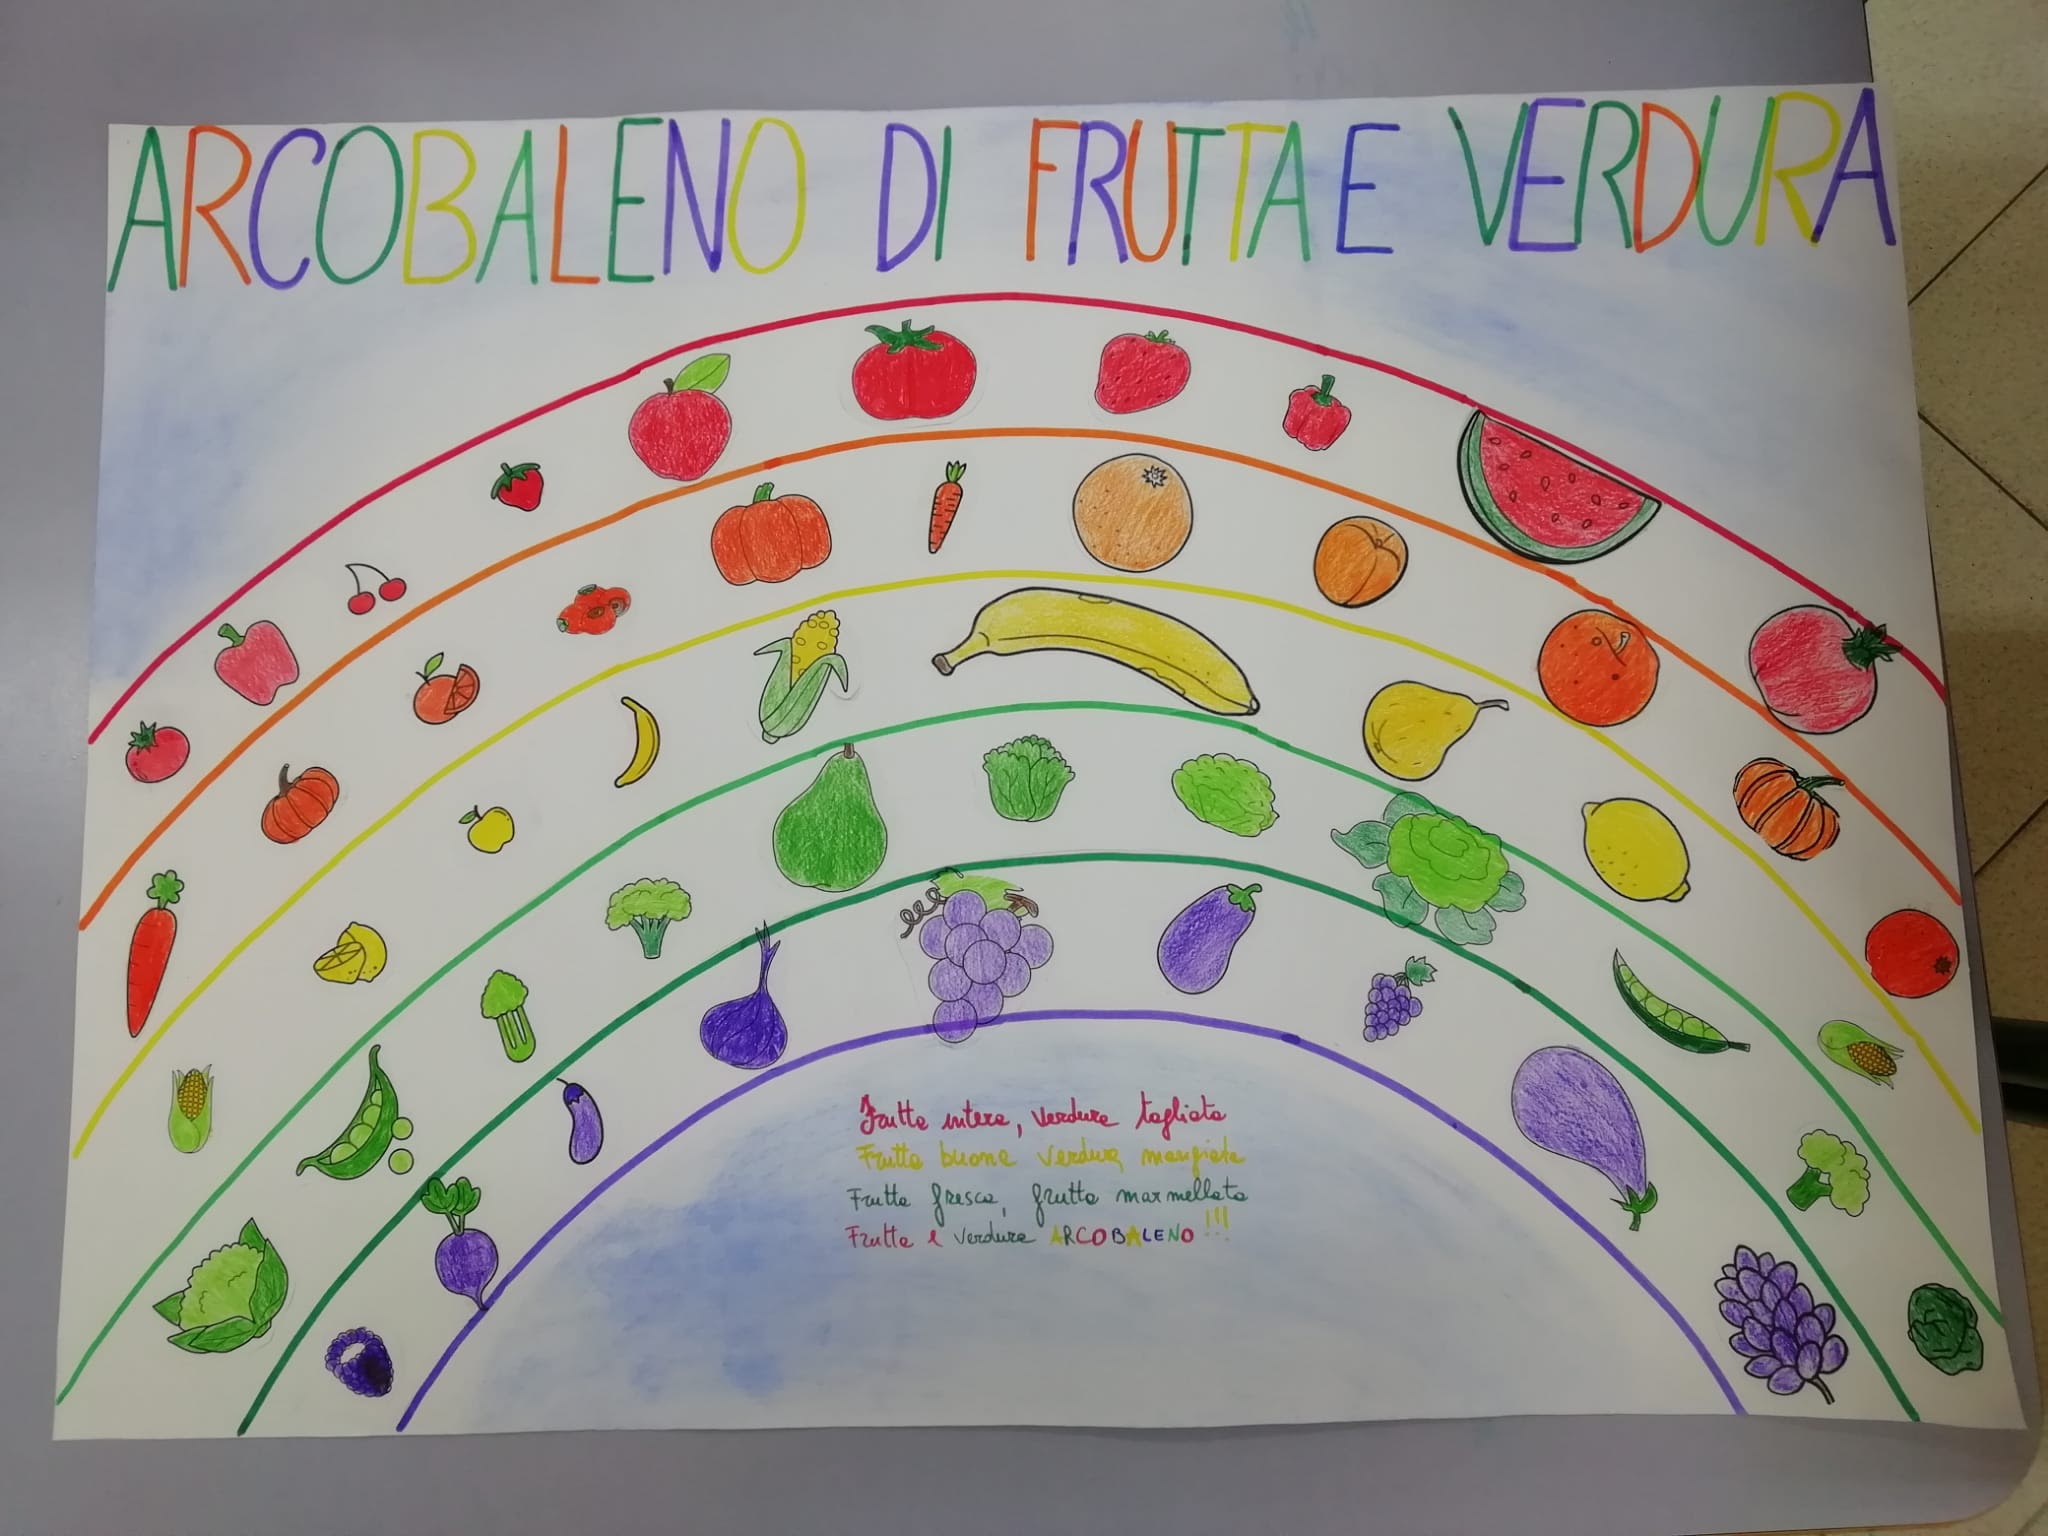 ARCOBALENO DI FRUTTA E VERDURA
Frutta intera, verdura tagliata
Frutta buona verdura mangiata
Frutta fresca, frutta marmellata
Frutta e verdura ARCOBALENO!!!